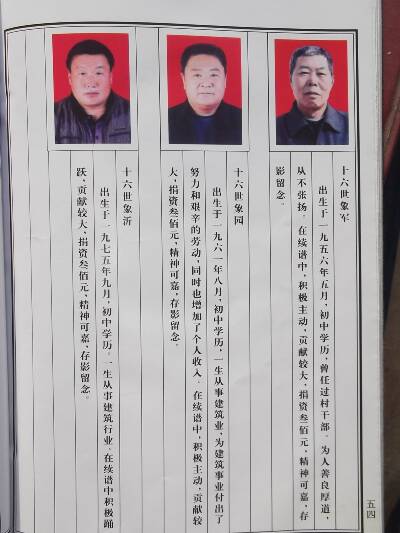 十六世象军
出生于一九五六年五月，初中学历，曾任过村干部。为人善良厚道，
从不张扬。在续谱中，积极主动，贡献较大，捐资叁佰元，精神可嘉，存
影留念。
十六世象园
出生于一九六一年八月，初中学历，一生从事建筑业，为建筑事业付出了
努力和艰辛的劳动，同时也增加了个人收入。在续谱中，积极主动，贡献较
大，捐资叁佰元，精神可嘉，存影留念。
十六世象沂
出生于一九七五年九月，初中学历。一生从事建筑行业。在续谱中积极踊
跃，贡献较大，捐资叁佰元，精神可嘉，存影留念。
五四